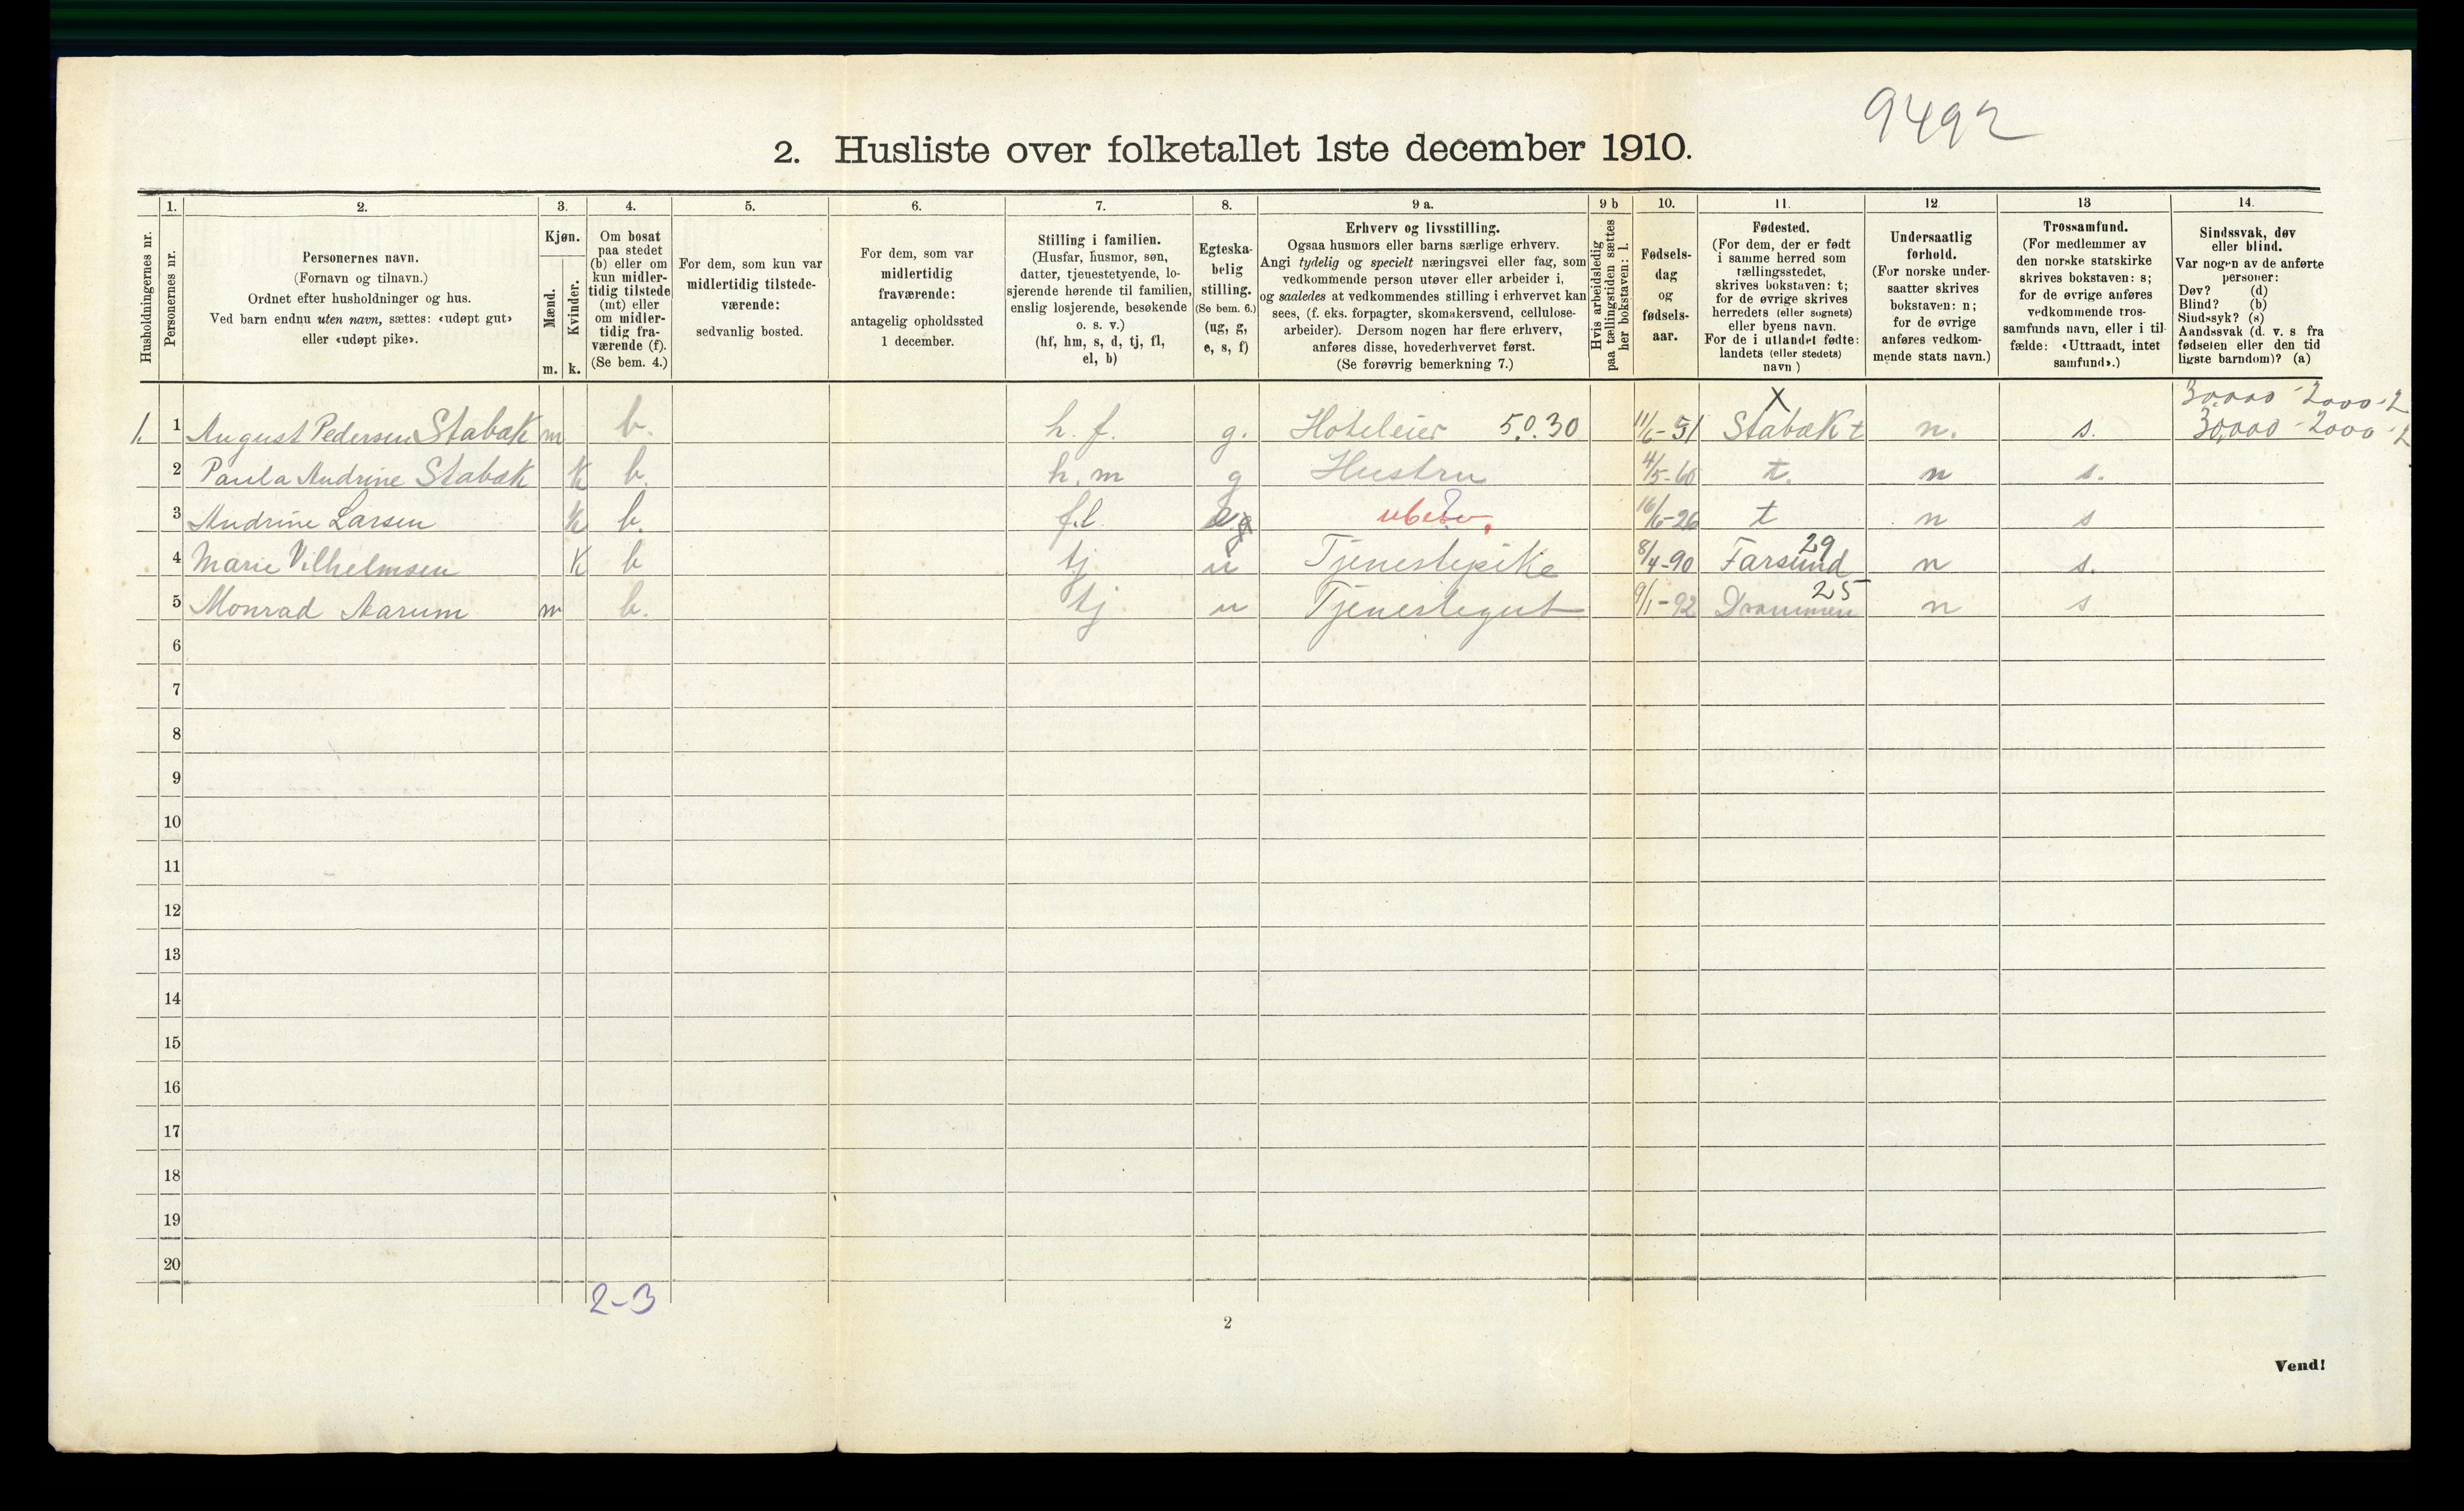 9492
2. Husliste over folketallet 1ste december 1910.
Husholdningernes nr.
1.
Personernes nr.
2.
Personernes navn.
(Fornavn og tilnavn.)
Ordnet efter husholdninger og hus.
Ved barn endnu uten navn, sættes: «udøpt gut»
eller «udøpt pike».
3.
Kjøn.
Mænd.
Kvinder.
m. k.
4.
Om bosat
paa stedet
(b) eller om
kun midler-
tidig tilstede
(mt) eller
om midler-
tidig fra-
værende (f).
(Se bem. 4.)
5.
For dem, som kun var
midlertidig tilstede-
værende:
sedvanlig bosted.
6.
For dem, som var
midlertidig
fraværende:
antagelig opholdssted
1 december.
7.
Stilling i familien.
(Husfar, husmor, søn,
datter, tjenestetyende, lo-
sjerende hørende til familien,
enslig losjerende, besøkende
o. s. v.)
(hf, hm, s, d, tj, fl,
el, b)
8.
Egteska-
belig
stilling.
(Se bem. 6.)
(ug, g,
e, s, f)
9 a.
Erhverv og livsstilling.
Ogsaa husmors eller barns særlige erhverv.
Angi tydelig og specielt næringsvei eller fag, som
vedkommende person utøver eller arbeider i,
og saaledes at vedkommendes stilling i erhvervet kan
sees, (f. eks. forpagter, skomakersvend, cellulose-
arbeider). Dersom nogen har flere erhverv,
anføres disse, hovederhvervet først.
(Se forøvrig bemerkning 7.)
9 b
Hvis arbeidsledig
paa tællingstiden sættes
her bokstaven: l.
10.
Fødsels-
dag
og
fødsels-
aar.
11.
Fødested.
(For dem, der er født
i samme herred som
tællingsstedet,
skrives bokstaven: t;
for de øvrige skrives
herredets (eller sognets)
eller byens navn.
For de i utlandet fødte:
landets (eller stedets)
navn )
12.
Undersaatlig
forhold.
(For norske under-
saatter skrives
bokstaven: n;
for de øvrige
anføres vedkom-
mende stats navn.)
13
Trossamfund.
(For medlemmer av
den norske statskirke
skrives bokstaven: s;
for de øvrige anføres
vedkommende tros-
samfunds navn, eller i til-
fælde: «Uttraadt, intet
samfund».)
14.
Sindssvak, døv
eller blind.
Var nogen av de anførte
personer:
Døv? (d)
Blind? (b)
Sindssyk? (s)
Aandssvak (d. v. s fra
fødselen eller den tid
ligste barndom)? (a)
X
30,000 - 2000 - 2
1. 1 August Pedersen Stabæk m b. h. f. g. Hoteleier 5.0.30 11/6-51 Stabæk t n. s. 30,000 - 2000 - 2
2 Paula Andrine Stabæk K b. h. m g Hustru 4/5-60 t. n s.
3 Andrine Larsen K b. f.l. ubesv. 16/6-26 t n s
29
4 Marie Vilhelmsen K b tj u Tjenestepike 8/4-90 Farsund n s.
25
5 Monrad Aarum m b. tj u Tjenestegut 9/1-92 Drammen n s
6
7
8
9
10
11
12
13
14
15
16
17
18
19
20
2-3
2
Vend!